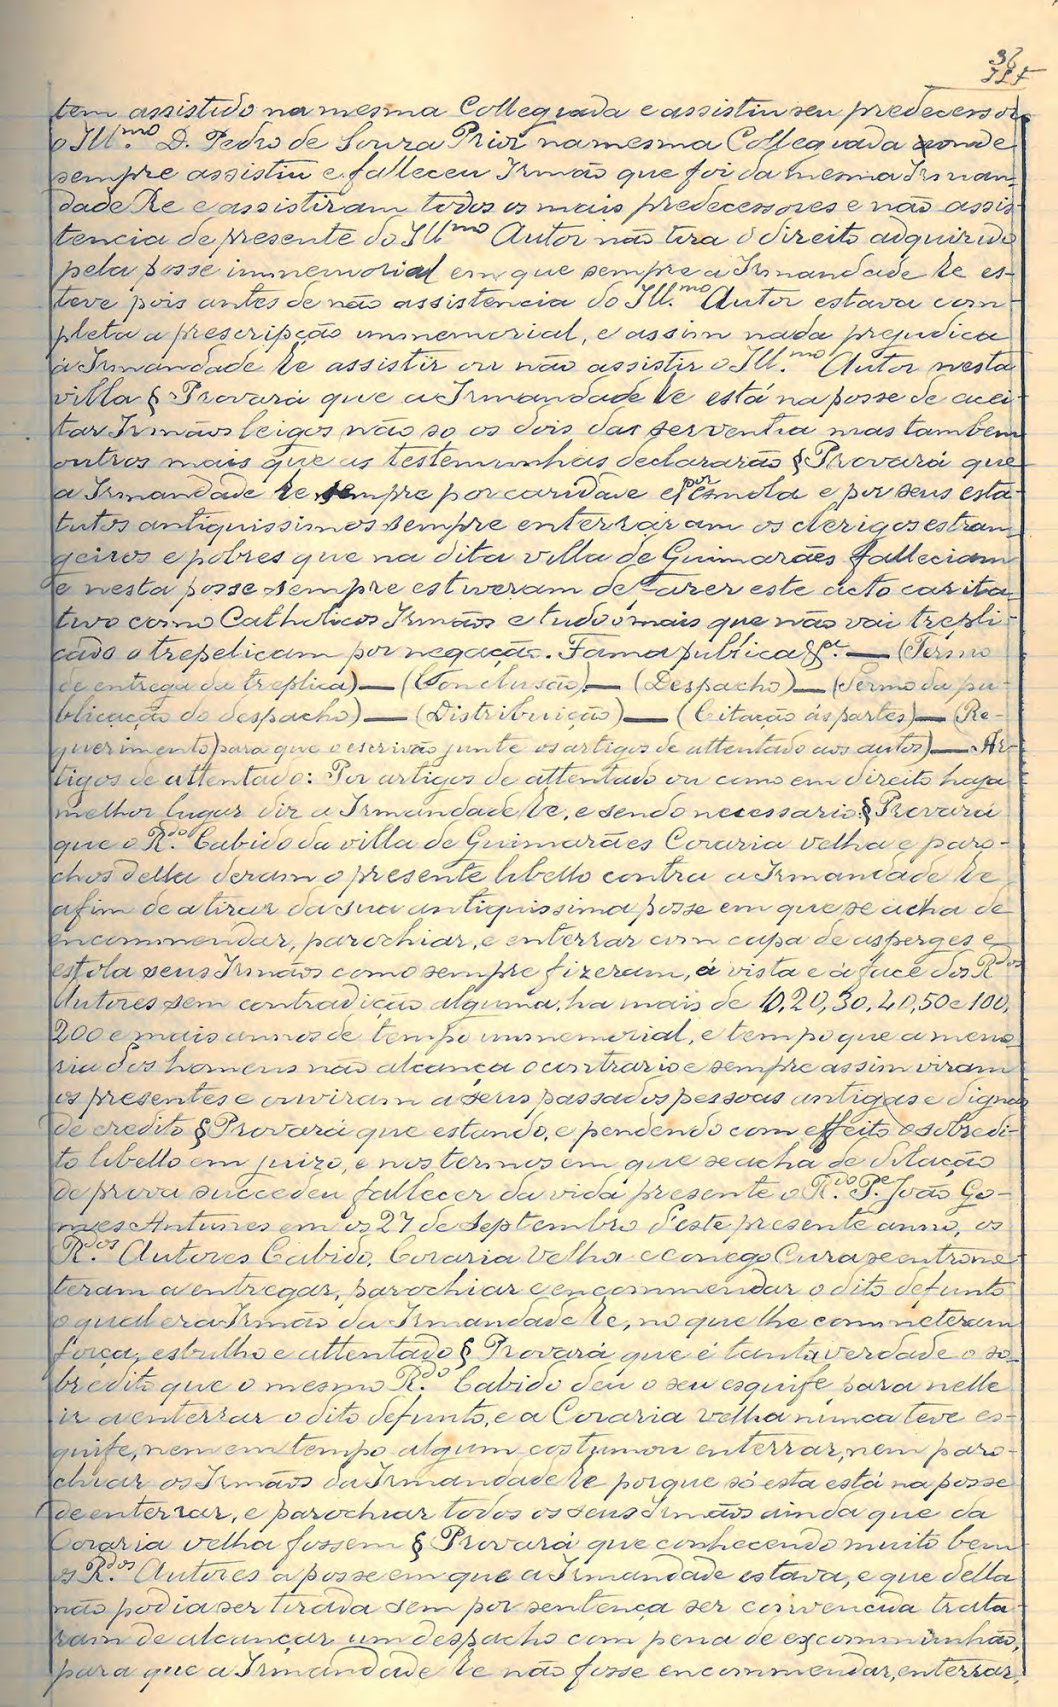 36
tem assistido na mesma Collegiada e assistiu seu predecessor
o Ill.mo D. Pedro de Souza Prior na mesma Collegiada aonde
sempre assistiu e falleceu Irmão que foi da mesma Irman-
dade Re e assistiram todos os mais predecessores e não assis-
tencia de presente do Ill.mo Autor não tira o direito adquirido
pela posse immemorial em que sempre a Irmandade Re es-
teve pois antes de não assistencia do Ill.mo Autor estava com-
pleta a prescripção immemorial, e assim nada prejudica
á Irmandade Re assistir ou não assistir o Ill.mo Autor nesta
villa § Provará que a Irmandade Re está na posse de acei-
tar Irmãos leigos não so os dois das serventia mas tambem
outros mais que as testemunhas declararão § Provará que
a Irmandade Re sempre por caridade e por esmola e por seus esta-
tutos antiquissimos sempre enterraram os clerigos estran-
geiros e pobres que na dita villa de Guimarães falleciam
e nesta posse sempre estiveram de fazer este acto carita-
tivo como Catholicos Irmãos e tudo o mais que não vai trepli-
cado o treplicam por negação. Fama publica &.a — (Termo
de entrega da treplica) — (Conclusão) — (Despacho) — (Termo da pu-
blicação do despacho) — (Distribuição) — (Citação ás partes) — (Re-
querimento) para que o escrivão junte os artigos de attentado aos autos) — Ar-
tigos de attentado: Por artigos de attentado ou como em direito haja
melhor lugar diz a Irmandade Re, e sendo necessario: § Provará
que o R.do Cabido da villa de Guimarães Coraria velha e paro-
chos della deram o presente libello contra a Irmandade Re
afim de a tirar da sua antiquissima posse em que se acha de
encommendar, parochiar, e enterrar com capa de asperges e
estola seus Irmãos como sempre fizeram, á vista e á face dos R.dos
Autores sem contradição alguma, ha mais de 10, 20, 30, 40, 50 e 100,
200 e mais annos de tempo immemorial, e tempo que a memo-
ria dos homens não alcança o contrario e sempre assim viram
os presentes e ouviram a seus passados pessoas antigas e dignas
de credito § Provará que estando, e pendendo com effeito o sobredi-
to libello em juizo, e nos termos em que se acha de dilação
de prova succedeu fallecer da vida presente o R.do P.e João Go-
mes Antunes em os 27 de Septembro d'este presente anno, os
R.dos Autores Cabido, Coraria Velha e conego Cura se entrome-
teram a entregar, parochiar e encommendar o dito defunto
o qual era Irmão da Irmandade Re, no que lhe commeteram
força, esbulho e attentado § Provará que é tanta verdade o so-
bredito que o mesmo R.do Cabido deu o seu esquife para nelle
ir a enterrar o dito defunto, e a Coraria velha nunca teve es-
quife, nem em tempo algum costumou enterrar, nem paro-
chiar os Irmãos da Irmandade Re porque só esta está na posse
de enterrar, e parochiar todos os seus Irmãos ainda que da
Coraria velha fossem § Provará que conhecendo muito bem
os R.dos Autores a posse em que a Irmandade estava, e que della
não podia ser tirada sem por sentença ser convencida trata-
ram de alcançar um despacho com pena de excommunhão,
para que a Irmandade Re não fosse encommendar, enterrar,